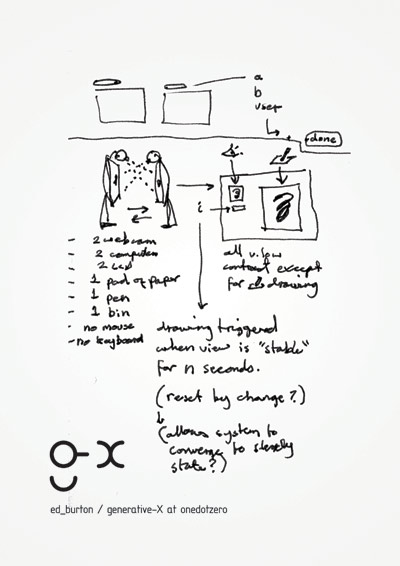 a
b
user
done
- 2 webcam
- 2 computer
- 2 LCD
- 1 pad of paper
- 1 pen
- 1 bin
- no mouse
- no keyboard
all v. low
contrast except
for drawing
drawing triggered
when view is "stable"
for n seconds.
(reset by change?)
(allows system to
converge to steady
state?)
g-x
ed_burton / generative-X at onedotzero